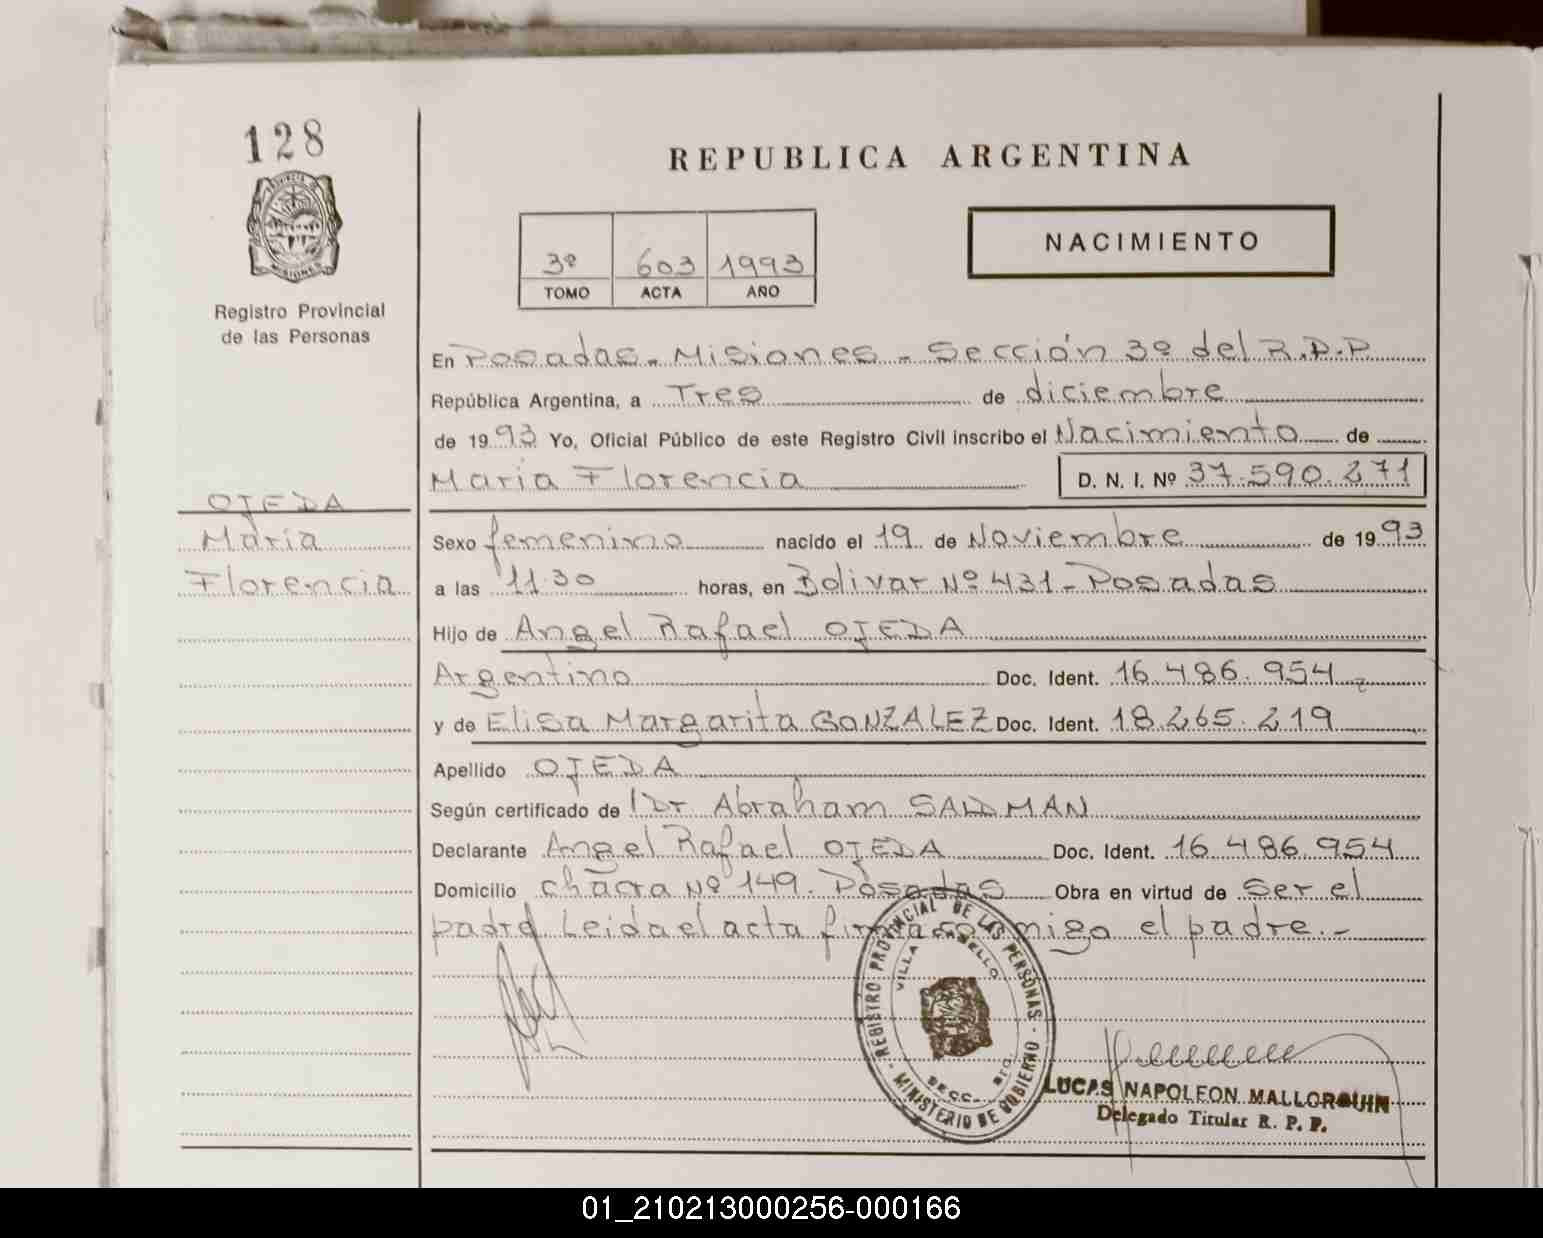 128
PROVINCIA DE
MISIONES
Registro Provincial
de las Personas
OJEDA
Maria
Florencia
REPUBLICA ARGENTINA
NACIMIENTO
3º 603 1993
TOMO ACTA AÑO
En Posadas - Misiones - Sección 3º del R.P.P
República Argentina, a Tres de diciembre
de 1993 Yo, Oficial Público de este Registro Civil inscribo el Nacimiento de
Maria Florencia D. N. I. Nº 37.590.271
Sexo femenino nacido el 19 de Noviembre de 1993
a las 11.30 horas, en Bolivar Nº 431 - Posadas
Hijo de Angel Rafael OJEDA
Argentino Doc. Ident. 16.486.954
y de Elisa Margarita GONZALEZ Doc. Ident. 18.265.219
Apellido OJEDA
Según certificado de Dr Abraham SALDMAN
Declarante Angel Rafael OJEDA Doc. Ident. 16.486.954
Domicilio chacra Nº 149. Posadas Obra en virtud de Ser el
padre Leida el acta firma conmigo el padre.-
REGISTRO PROVINCIAL DE LAS PERSONAS - MINISTERIO DE GOBIERNO -
VILLA CABELLO
SECC.
LUCAS NAPOLEON MALLORQUIN
Delegado Titular R. P. P.
01_210213000256-000166